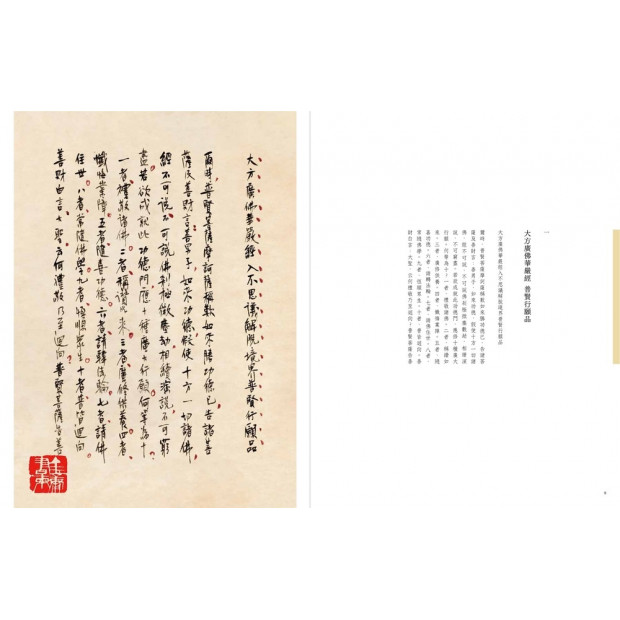 大方廣佛華嚴經入不思議解脫境界普賢行願品
爾時普賢菩薩摩訶薩稱歎如來勝功德已告諸菩
薩及善財言善男子如來功德假使十方一切諸佛
經不可說不可說佛剎極微塵數劫相續演說不可窮
盡若欲成就此功德門應修十種廣大行願何等為十
一者禮敬諸佛二者稱讚如來三者廣修供養四者
懺悔業障五者隨喜功德六者請轉法輪七者請佛
住世八者常隨佛學九者恆順眾生十者普皆迴向
善財白言大聖云何禮敬乃至迴向普賢菩薩告善
一
大方廣佛華嚴經 普賢行願品
大方廣佛華嚴經入不思議解脫境界普賢行願品
爾時，普賢菩薩摩訶薩稱歎如來勝功德已，告諸菩
薩及善財言：善男子，如來功德，假使十方一切諸
佛，經不可說不可說佛剎極微塵數劫，相續演
說，不可窮盡。若欲成就此功德門，應修十種廣大
行願。何等為十？一者，禮敬諸佛。二者，稱讚如
來。三者，廣修供養。四者，懺悔業障。五者，隨
喜功德。六者，請轉法輪。七者，請佛住世。八者，
常隨佛學。九者，恆順眾生。十者，普皆迴向。善
財白言：大聖，云何禮敬乃至迴向？普賢菩薩告善